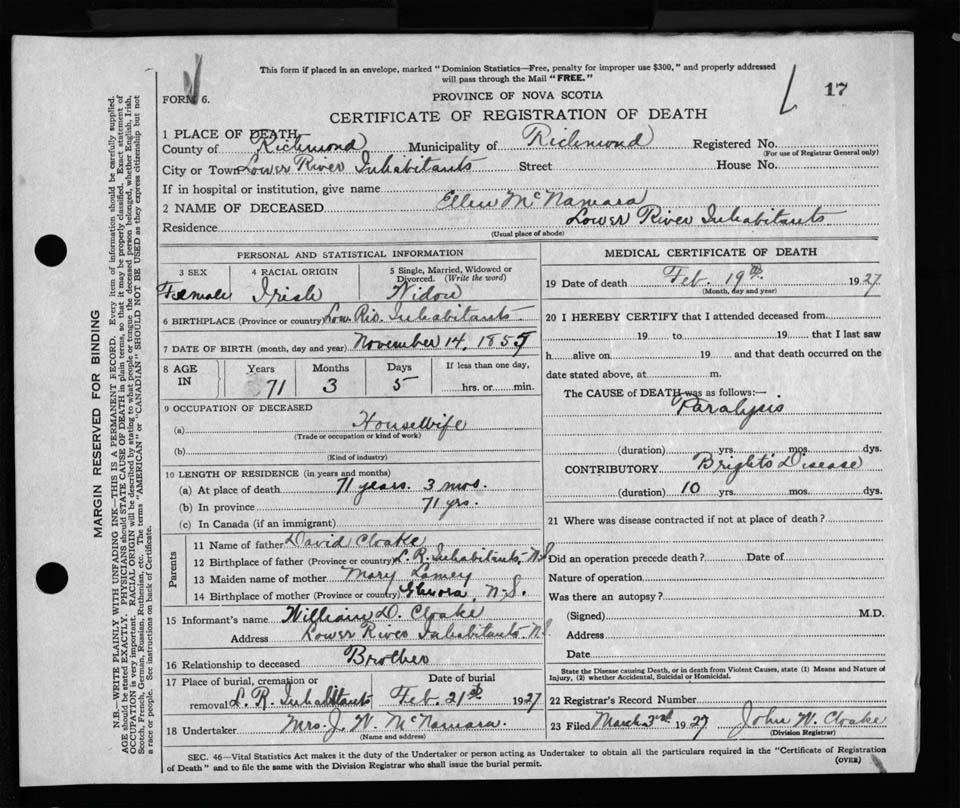 This form if placed in an envelope, marked "Dominion Statistics—Free, penalty for improper use $300," and properly addressed
will pass through the Mail "FREE."
17
FORM 6.
PROVINCE OF NOVA SCOTIA
CERTIFICATE OF REGISTRATION OF DEATH
1 PLACE OF DEATH
County of Richmond Municipality of Richmond Registered No.
(For use of Registrar General only)
City or Town Lower River Inhabitants Street House No.
If in hospital or institution, give name
2 NAME OF DECEASED Ellen McNamara
Residence Lower River Inhabitants
(Usual place of abode)
PERSONAL AND STATISTICAL INFORMATION
3 SEX 4 RACIAL ORIGIN 5 Single, Married, Widowed or
Divorced. (Write the word)
Female Irish Widow
6 BIRTHPLACE (Province or country) Low. Riv. Inhabitants
7 DATE OF BIRTH (month, day and year) November 14, 1855
8 AGE IN Years Months Days If less than one day,
71 3 5 hrs. or min.
9 OCCUPATION OF DECEASED
(a) Housewife
(Trade or occupation or kind of work)
(b)
(Kind of industry)
10 LENGTH OF RESIDENCE (in years and months)
(a) At place of death 71 years. 3 mos.
(b) In province 71 yrs.
(c) In Canada (if an immigrant)
Parents
11 Name of father David Cloake
12 Birthplace of father (Province or country) L. R. Inhabitants, N.S
13 Maiden name of mother Mary Lamey
14 Birthplace of mother (Province or country) N.S.
15 Informant's name William D. Cloake
Address Lower River Inhabitants N.S
16 Relationship to deceased Brother
17 Place of burial, cremation or Date of burial
removal L. R. Inhabitants Feb. 21st 1927
18 Undertaker Mrs. J. W. McNamara.
(Name and address)
MEDICAL CERTIFICATE OF DEATH
19 Date of death Feb. 19th. 1927
(Month, day and year)
20 I HEREBY CERTIFY that I attended deceased from
19 to 19 that I last saw
h alive on 19 and that death occurred on the
date stated above, at m.
The CAUSE of DEATH was as follows:
Paralysis
(duration) yrs. mos. dys.
CONTRIBUTORY Bright's Disease
(duration) 10 yrs. mos. dys.
21 Where was disease contracted if not at place of death?
Did an operation precede death? Date of
Nature of operation
Was there an autopsy?
(Signed) M.D.
Address
Date
State the Disease causing Death, or in death from Violent Causes, state (1) Means and Nature of
Injury, (2) whether Accidental, Suicidal or Homicidal.
22 Registrar's Record Number
23 Filed March 3rd 1927 John W. Cloake
(Division Registrar)
SEC. 46—Vital Statistics Act makes it the duty of the Undertaker or person acting as Undertaker to obtain all the particulars required in the "Certificate of Registration
of Death" and to file the same with the Division Registrar who shall issue the burial permit.
(OVER)
MARGIN RESERVED FOR BINDING
N.B.—WRITE PLAINLY WITH UNFADING INK—THIS IS A PERMANENT RECORD. Every item of information should be carefully supplied.
AGE should be stated EXACTLY. PHYSICIANS should STATE CAUSE OF DEATH in plain terms, so that it may be properly classified. Exact statement of
OCCUPATION is very important. RACIAL ORIGIN will be described by stating to what people or tongue the deceased person belonged, whether English, Irish,
Scotch, French, German, Russian, Ruthenian, etc. The terms "AMERICAN" or "CANADIAN" SHOULD NOT BE USED as they express citizenship but not
a race or people. See instructions on back of Certificate.